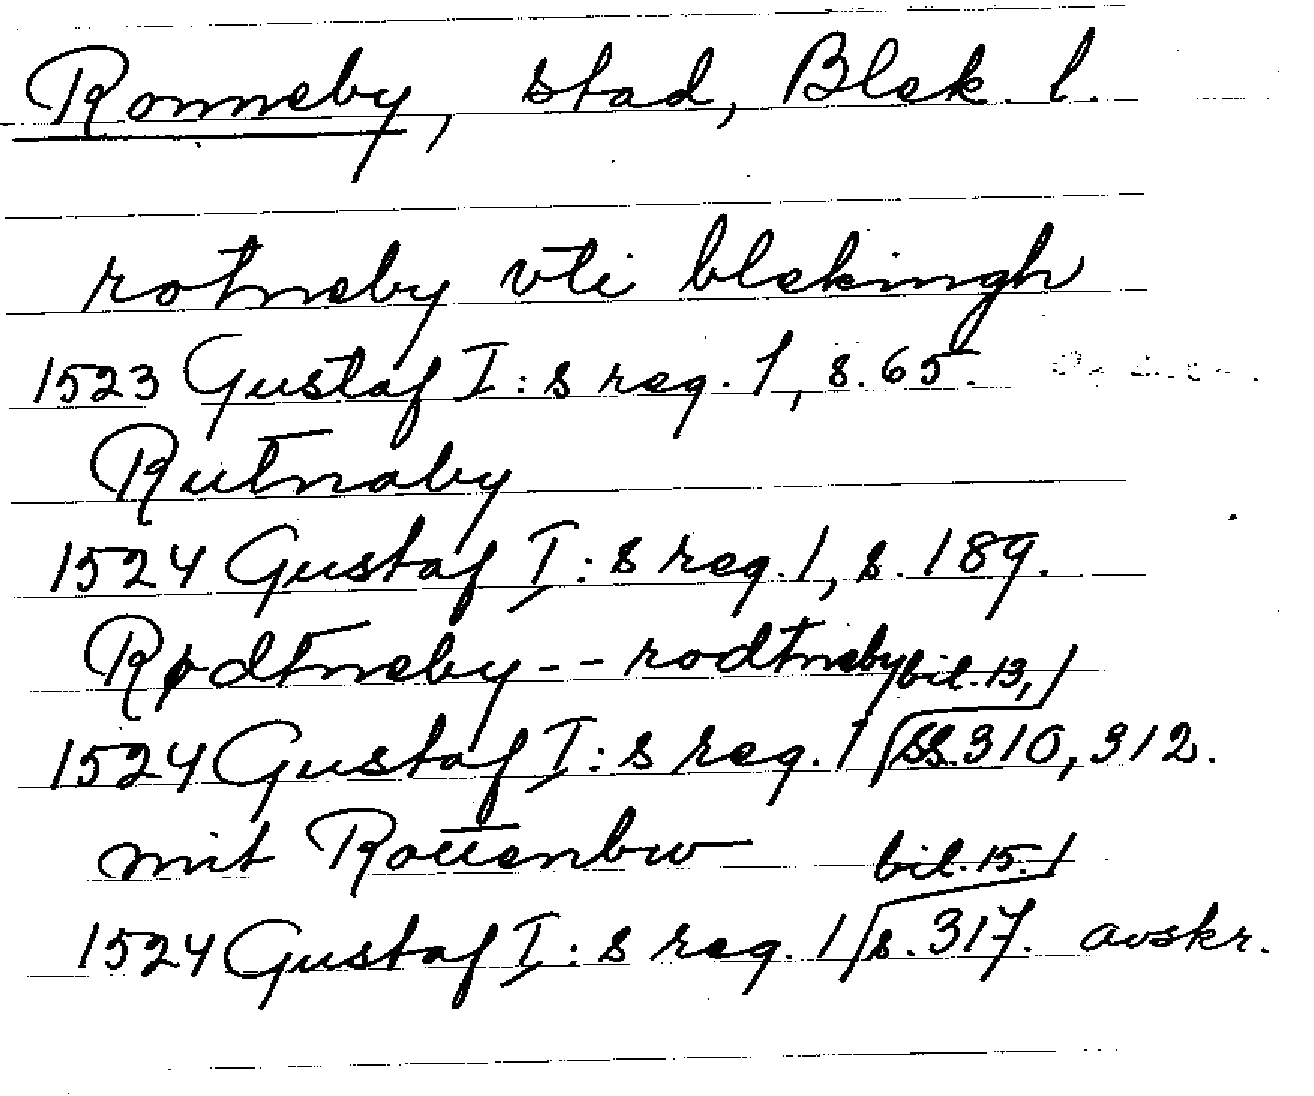 Ronneby, stad, Blek. l.
rotneby vti blekingh
1523 Gustaf I:s reg. 1, s. 65.
Rutnaby
1524 Gustaf I:s reg. 1, s. 189.
Rødtneby -- rodtneby
1524 Gustaf I:s reg. 1 bil. 13, ss. 310, 312.
mit Rottenbw
1524 Gustaf I:s reg. 1 bil. 15. s. 317. avskr.